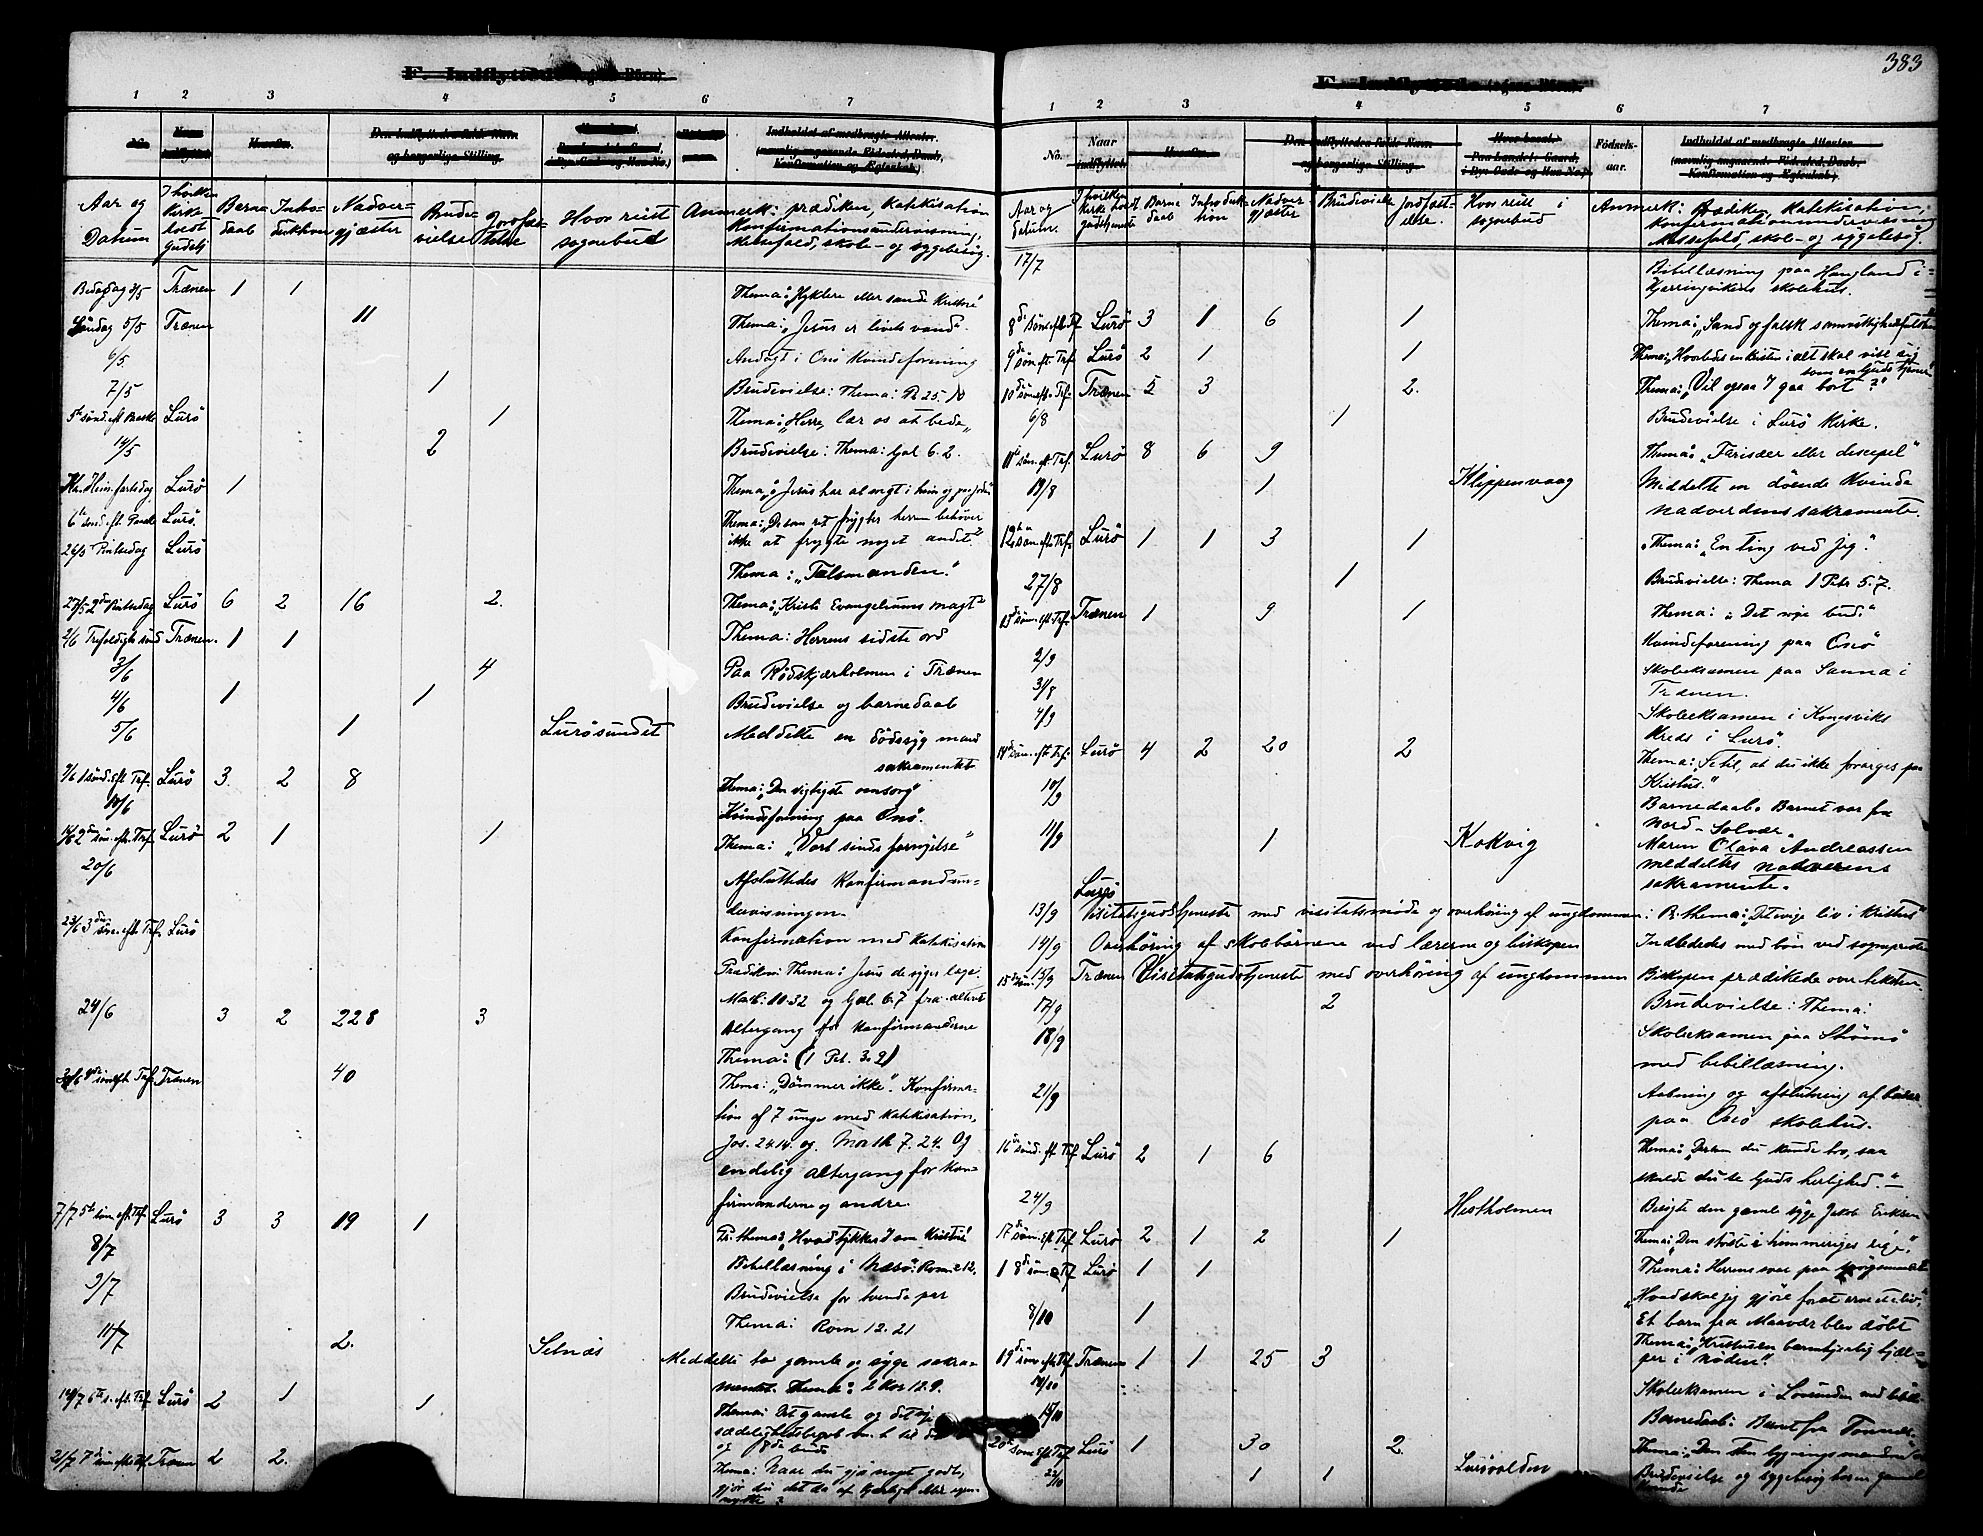 383
F. Indflyttede (ogsaa Börn).
1 2 3 4 5 6 7
Aar og Datum
I hvilken Kirke holdt Gudstj.
Barnedaab
Introduktion
Nadvergjæster
Brudevielse
Jordfæstelse
Hvor reist i sognebud
Anmerk: prædiken, Katekisation
Konfirmationsundervisning,
Messefald, skole- og sygebesög.
Bededag 3/5 Trænen 1 1 Thema: "Hyklere eller sande Kristne"
Söndag 5/5 Trænen 11 Thema: "Jesus er livets vand".
6/5 Andagt i Onö Kvindeforening
7/5 1 Brudevielse: Thema:
5te sönd. eft Paaske Lurö 1 Thema: "Herre, lær os at bede"
14/5 2 Brudevielse: Thema: Gal 6.2.
Kr. Him. fartsdag Lurö 1 Thema: "Jesus har al magt i him og paa jord"
6te sönd. eft. Paaske Lurö. Thema: "De som ret frygter herren behöver
ikke at frygte noget andet."
26/5 Pintsedag Lurö Thema: "Talsmanden."
27/5 2den Pintsedag Lurö 6 2 16 2. Thema: "Kristi Evangeliums magt"
2/6 Trefoldigh. sönd Trænen. 1 1 Thema: Herrens sidste ord
3/6 4 Paa Rödskjærholmen i Trænen
4/6 1 1 Brudevielse og barnedaab
5/6 1 Lurösundet Meddelte en dödssyg mand
sakramentet
9/6 1 sönd. eft Tref. Lurö 3. 2 8 Thema: "Den vigtigste omsorg"
10/6 Kvindeforening paa Onö.
16/6 2den sön. eft. Tref. Lurö 2 1 1 Thema: "Vort sinds fornyelse"
20/6 Afsluttedes Konfirmandun-
dervisningen.
23/6 3die sön. eft. Tref. Lurö Konfirmation med Katekisation
Prædiken: Thema: Jesus de syges læge.
Mark: 10.32 og Gal. 6.7 fra alteret
24/6 3 2 228 3 Altergang for Konfirmanderne
Thema: (1 Pet. 3.9)
30/6 4de sön eft. Tref. Trænen 40 Thema: "Dömmer ikke". Konfirma-
tion af 7 unge med katekisation,
Jos. 24.14. og Math 7.24. Og
endelig altergang for kon-
firmanderne og andre.
7/7 5te sön eft. Tref Lurö 3 3 19 1 Pr. thema: "Hvad tykkes I om Kristus"
8/7 Bibellæsning i Næsö: Rom. 2.12.
9/7 Brudevielse for tvende par
Thema: Rom 12.21
11/7 2. Selnæs Meddelte to gamle og syge sakra-
mentet. Thema: 2 Kor 12.9.
14/7 6te s. eft. Tref Lurö 2 1 1 Thema: Det gamle og det nye
sædelighedsbegreb
og 5te bud
21/7 7de sön eft. Tref Trænen 2 2. Thema: Naar du gjör noget godt,
gjör du det da af kjærlighed eller egen-
nytte?
F. Indflyttede (ogsaa Börn).
1 2 3 4 5 6 7
No. Naar indflyttet. Födsels-aar.
Aar og Datum.
I hvilken Kirke holdt gudstjeneste
Barnedaab
Introduktion
Nadvergjæster
Brudevielse
Jordfæstelse.
Hvor reist i sognebud
Anmerk: Prædiken, Katekisation,
Konfirmationsundervisning
Messefald, skole- og sygebesög.
17/7 Bibellæsning paa Haugland i
Kjerringvikens skolehus.
8de sön eft Tref Lurö 3 1 6 1 Thema: "Sand og falsk samvittighedsfulhed"
9de sön. eft. Tref. Lurö 2 1 1 Thema: Hvorledes en kristen i alt skal vise sig
som en Guds tjener"
10de sön eft. Tref. Trænen 5 3 2. Thema: "Vil ogsaa I gaa bort?"
6/8 1 Brudevielse i Lurö Kirke.
11te sön. eft. Tref. Lurö 8 6 9 Thema: "Farisæer eller discipel"
19/8 1 Klippenvaag Meddelte en döende Kvinde
nadverdens sakramente.
12te sön. eft. Tref. Lurö 1 1 3 1 Thema: "En ting ved jeg".
27/8 1 Brudevielse: Thema 1 Petr 5.7.
13de sön. eft. Tref. Trænen 1 9 1 Thema: "Det nye bud."
2/9 Kvindeforening paa Onö
3/8 Skoleeksamen paa Sanna i
Trænen.
4/9 Skoleeksamen i Kongsviks
Kreds i Lurö.
14de sön. eft. Tref. Lurö 4 2 20 2 Thema: Se til, at du ikke forarges paa
Kristus."
10/9 Barnedaab. Barnet var fra
Nord-Solvær.
11/9 1 Kokvig Maren Olava Andreassen
meddeltes nadverens
sakramente.
13/9 Lurö Visitatsgudstjeneste med visitatsmöde og overhöring af ungdommen: Pr. thema: "Det evige liv i Kristus"
14/9 Overhöring af skolebörnene ved lærerne og biskopen Indlededes med bön ved sognepresten
15de sön. 15/9 Trænen Visitatsgudstjeneste med overhöring af ungdommen Biskopen prædikede over teksten.
17/9 2 Brudevielse: Thema:
18/9 Skoleeksamen paa Strömö
med bibellæsning.
21/9 Aabning og afslutning af basar
paa Onö skolehus.
16de sönd. eft Tref Lurö 2 1 6 Thema: "Dersom du kunde tro, saa
skulde du se Guds herlighed."
24/9 Hestholmen Besögte den gamle syge Jakob Eriksen
17de sön. eft Tref Lurö 2 1 2 1 Thema: "Den störste i himmeriges rige."
18de sön. e. Tref Lurö 1 1 Thema: Herrens svar paa spörgsmaalet
"Hvad skal jeg gjöre for at arve et liv,"
8/10 1 Et barn fra Maasvær blev döbt
19de sön eft Tref Trænen 1 1 25 3 Thema: "Kristus en barmhjertig hjæl-
per i nöden".
14/10 Skoleeksamen i Lovunden med bibell.
15/10 Barnedaab: Barnet fra Tonnes.
20de sön eft Tref Lurö 1 30 2. Thema: "Den store bygningsmand"
22/10 1 1 Lurövolden Brudevielse og sygebesög hos en gammel
Kvinde